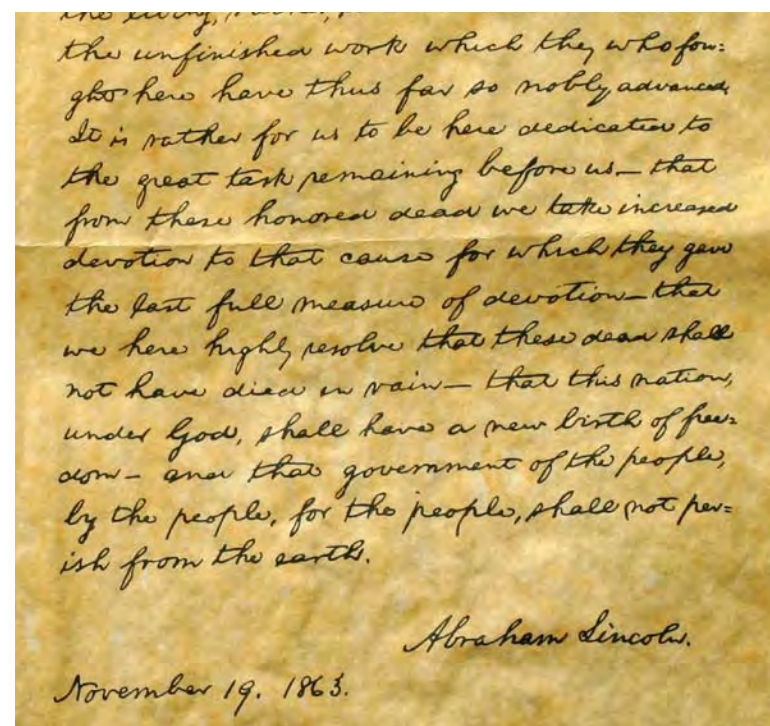 the living, rather,
the unfinished work which they who fou=
ght here have thus far so nobly advanced.
It is rather for us to be here dedicated to
the great task remaining before us — that
from these honored dead we take increased
devotion to that cause for which they gave
the last full measure of devotion — that
we here highly resolve that these dead shall
not have died in vain — that this nation,
under God, shall have a new birth of free=
dom — and that government of the people,
by the people, for the people, shall not per=
ish from the earth.
Abraham Lincoln.
November 19. 1863.